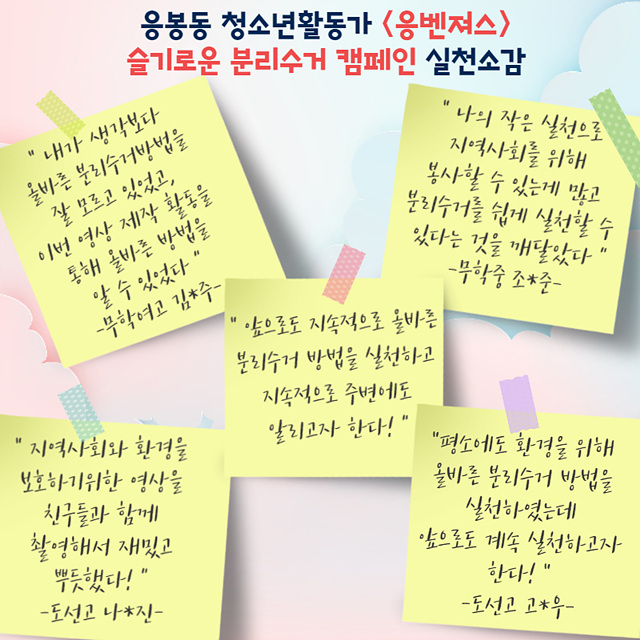 응봉동 청소년활동가 <응벤져스>
슬기로운 분리수거 캠페인 실천소감
" 내가 생각보다
올바른 분리수거방법을
잘 모르고 있었고,
이번 영상 제작 활동을
통해 올바른 방법을
알 수 있었다 "
-무학여고 김*주-
" 나의 작은 실천으로
지역사회를 위해
봉사할 수 있는게 많고
분리수거를 쉽게 실천할 수
있다는 것을 깨달았다 "
-무학중 조*준-
" 앞으로도 지속적으로 올바른
분리수거 방법을 실천하고
지속적으로 주변에도
알리고자 한다! "
" 지역사회와 환경을
보호하기위한 영상을
친구들과 함께
촬영해서 재밌고
뿌듯했다! "
-도선고 나*진-
"평소에도 환경을 위해
올바른 분리수거 방법을
실천하였는데
앞으로도 계속 실천하고자
한다! "
-도선고 고*우-